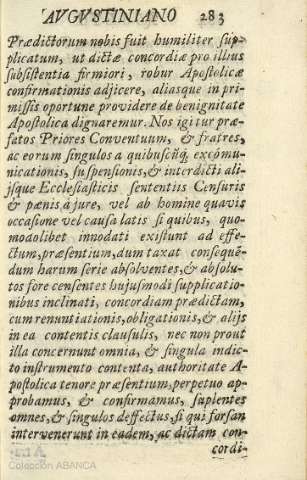 AVGVSTINIANO 283
Prædictorum nobis fuit humiliter sup-
plicatum, ut dictæ concordiæ pro illius
subsistentia firmiori, robur Apostolicæ
confirmationis adjicere, aliasque in pri-
missis oportune providere de benignitate
Apostolica dignaremur. Nos igitur præ-
fatos Priores Conventuum, & fratres,
ac eorum singulos a quibuscũq; excõmu-
nicationis, suspensionis, & interdicti ali-
jsque Ecclesiasticis sententiis Censuris
& pœnis à jure, vel ab homine quavis
occasione vel causa latis si quibus, quo-
modolibet innodati existunt ad effe-
ctum, præsentium, dum taxat consequẽ-
dum harum serie absolventes, & absolu-
tos fore censentes hujusmodi supplicatio-
nibus inclinati, concordiam prædictam,
cum renuntiationis, obligationis, & alijs
in ea contentis clausulis, nec non prout
illa concernunt omnia, & singula in dic-
to instrumento contenta, authoritate A-
postolica tenore præsentium, perpetuo ap-
probamus, & confirmamus, suplentes
omnes, & singulos deffectus, si qui forsan
intervenerunt in eadem, ac dictam con-
cordi-
Colección ABANCA